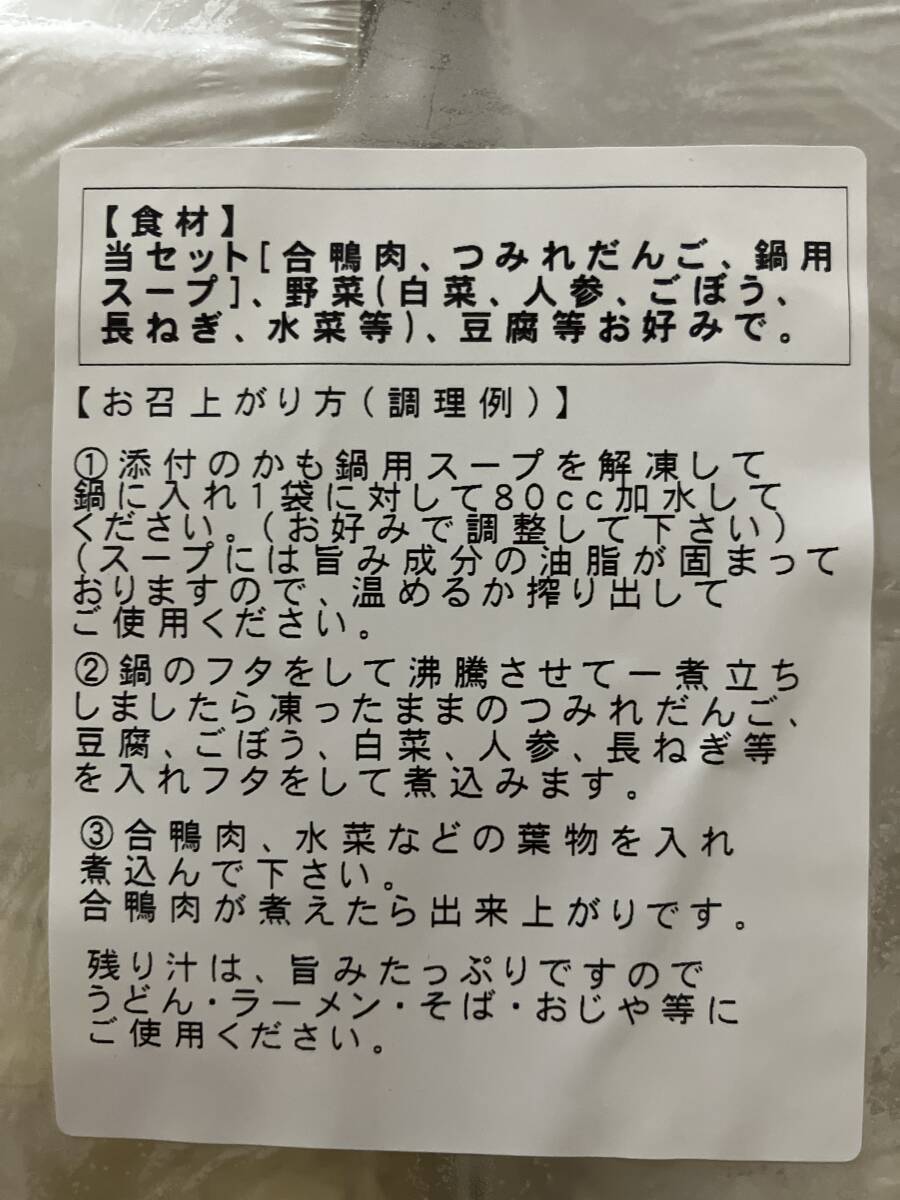 【食材】
当セット[合鴨肉、つみれだんご、鍋用
スープ]、野菜(白菜、人参、ごぼう、
長ねぎ、水菜等)、豆腐等お好みで。
【お召上がり方(調理例)】
①添付のかも鍋用スープを解凍して
鍋に入れ1袋に対して80cc加水して
ください。(お好みで調整して下さい)
(スープには旨み成分の油脂が固まって
おりますので、温めるか搾り出して
ご使用ください。
②鍋のフタをして沸騰させて一煮立ち
しましたら凍ったままのつみれだんご、
豆腐、ごぼう、白菜、人参、長ねぎ等
を入れフタをして煮込みます。
③合鴨肉、水菜などの葉物を入れ
煮込んで下さい。
合鴨肉が煮えたら出来上がりです。
残り汁は、旨みたっぷりですので
うどん・ラーメン・そば・おじや等に
ご使用ください。